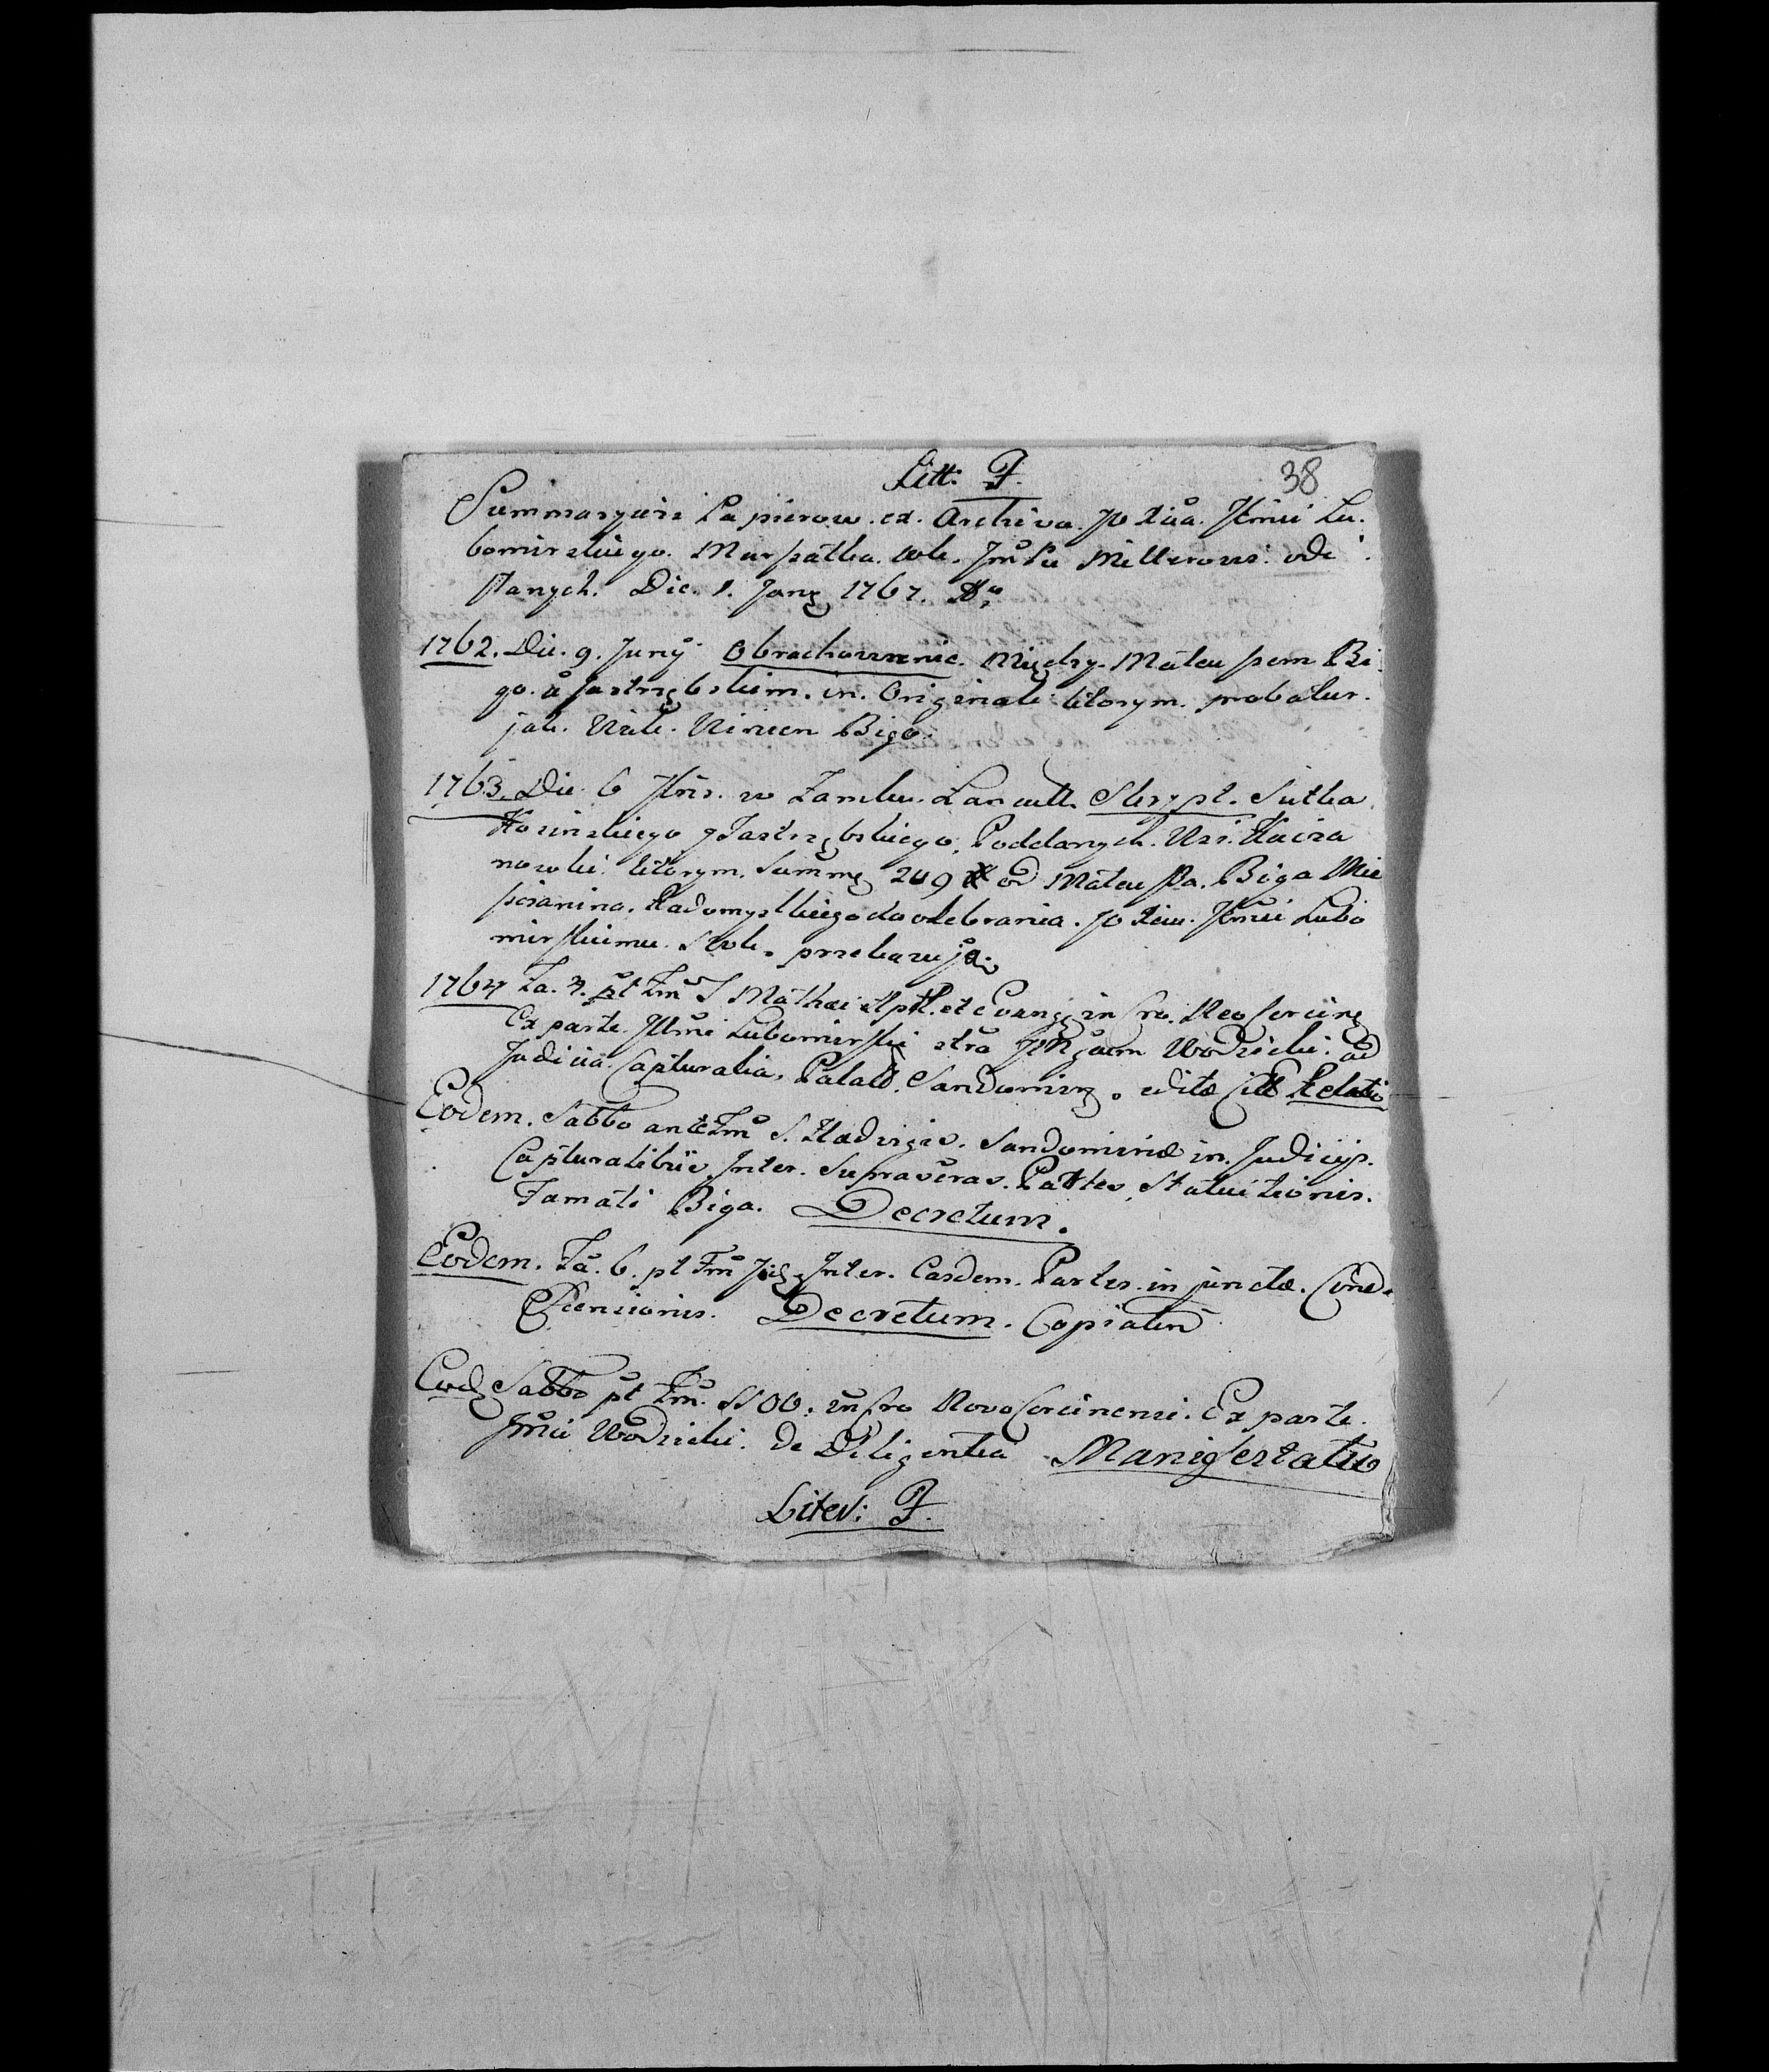 Litt: F.
38
Summaryusz Papierow. ex. Archiva. JO Xcia. Jmci Lu.
bomirskiego. Marszałka. Wk. Jmć Pu Millerowi: ode:
słanych. Die. 1. Jan 1767. Ao
1762. Die. 9. Juny Obrachowanie. Między. Mateuszem Bi:
go. a Jastrzębskim. in. Originali ktorym. probatur.
jak. Wiele. Winien Bigo.
1763. Die. 6 Xbris. w Zamku. Lancutt. Skrypt. Sutka
Kosinskiego y Jastrzębskiego. Poddanych. Wsi.
nowki. ktorym. Summę 209 od Mateusza. Biga Mie
szczanina. Radomyslkiego do odebrania. JO Xciu. Jmci Lubo
mirskiemu. przekazują.
1764 Fa. 3. pt Fm S Mathæi Apli. et Evang. in Cro. Neo Corcinen
Ex parte. Jllmi Lubomirski ctra Wodzicki. ad
Judicia. Capturalia. Palatt. Sandomirz. editæ Citt Relatio
Eodem. Sabbo ante Fm S. Hedvigis. Sandomiriæ in. Judicijs.
Capturalibus Inter. Supraseras. Partes, Statuitionis.
Famati Biga. Decretum.
Eodem. Fa. 6. pt Fm Inter. Easdem. Partes. in junctæ. Cond.
scensionis. Decretum. Copiatim
Eod Sabbo pt Fm. SS OO. in Cro Novo Corcinensi. Ex parte.
Jmci Wodzicki. de Diligentia Manifestatio
Liter: F.